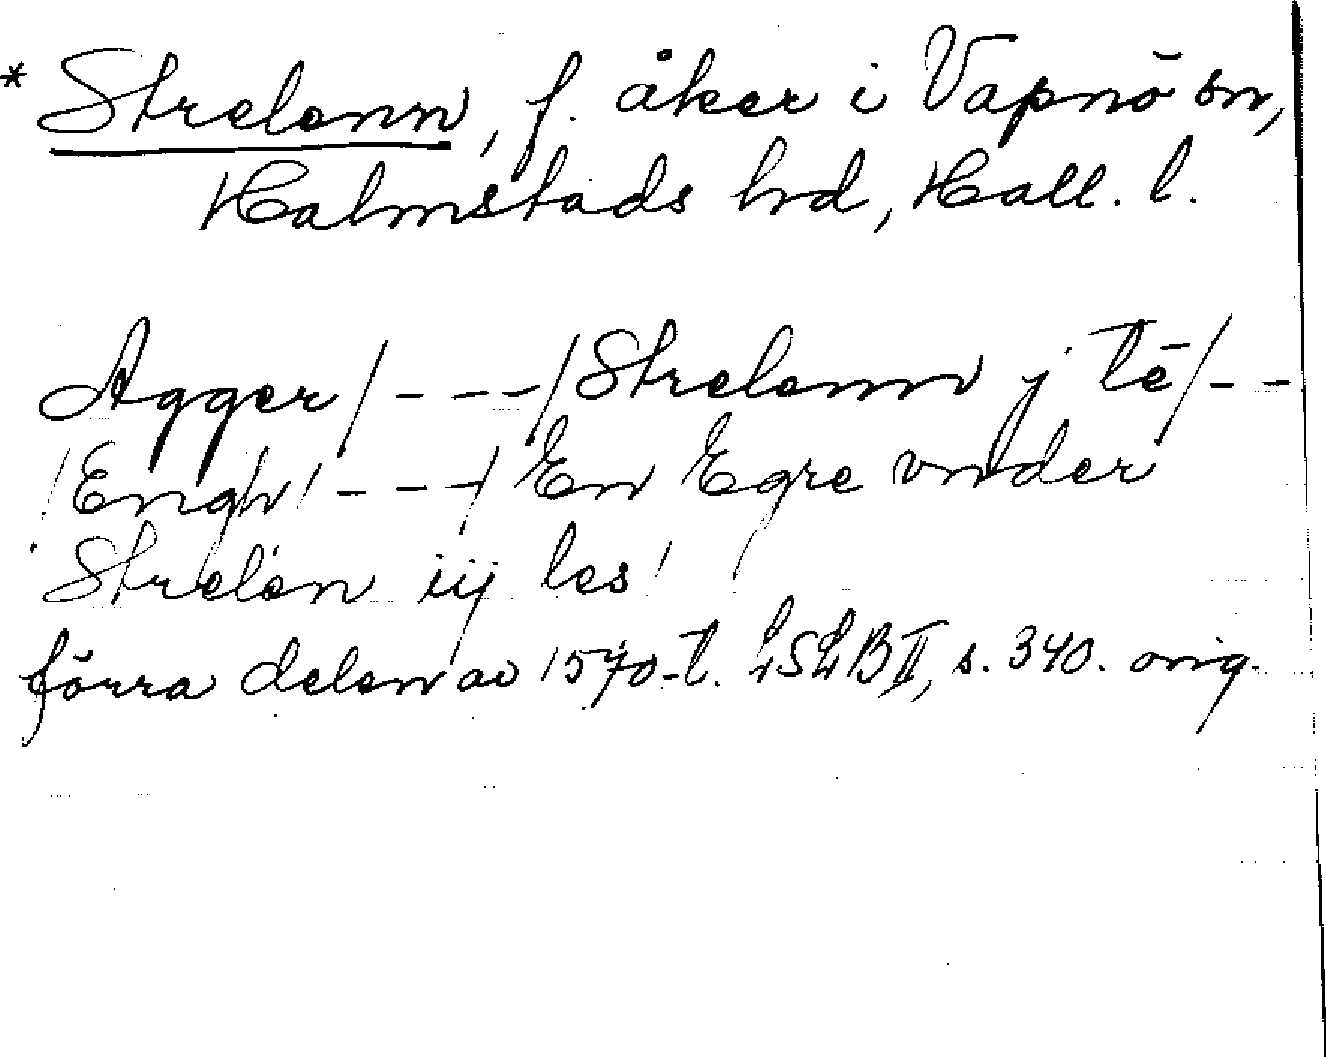 * Strelenn, f. åker i Vapnö sn,
Halmstads hrd, Hall. l.
Agger / - - - / Strelenn j Tē / - -
/ Engh / - - - / En Egre vnder
Strelen iij les /
förra delen av 1570-t. LSLB II, s. 340. orig.